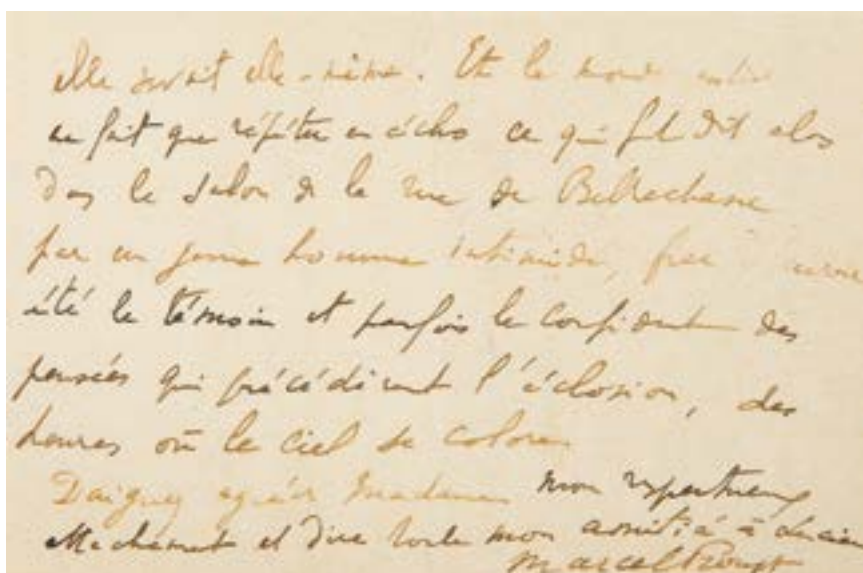 elle serait elle-même. Et le monde entier
ne fait que répéter en écho ce qui fut dit alors
dans le salon de la rue de Bellechasse
par un jeune homme intimidé, fier
été le témoin et parfois le confident des
pensées qui précédèrent l'éclosion, des
heures où le ciel se colore
Daignez agréer Madame mon respectueux
attachement et dire toute mon amitié à Lucien
Marcel Proust